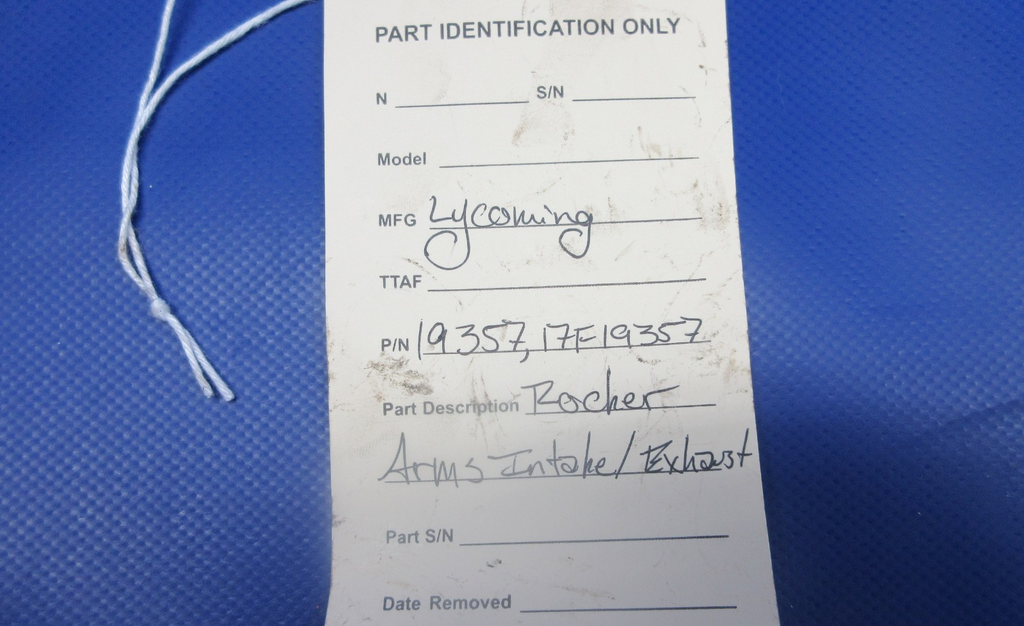 PART IDENTIFICATION ONLY
N S/N
Model
MFG Lycoming
TTAF
P/N 19357, 17F19357
Part Description Rocker
Arms Intake/Exhaust
Part S/N
Date Removed